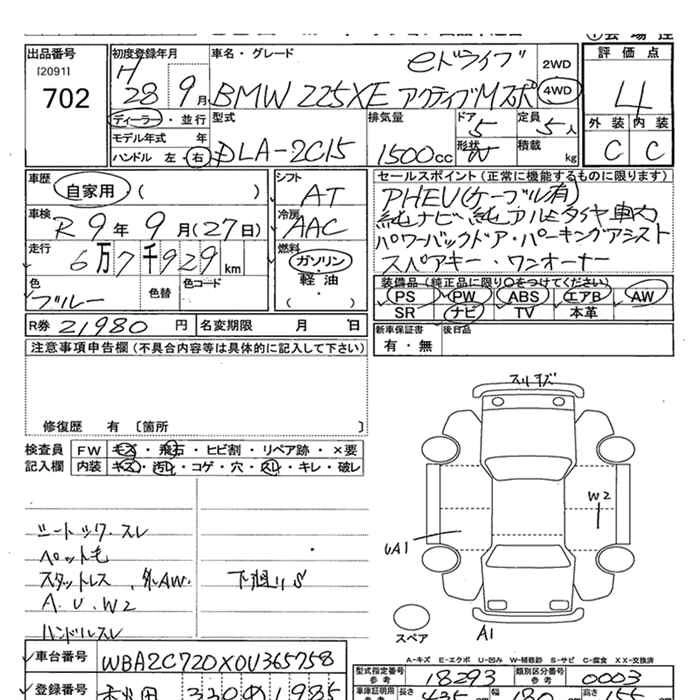 出品番号
[20911
702
初度登録年月
H
28 9月
車名・グレード
eドライブ
BMW 225XE アクティブMスポ
2WD
4WD
評価点
4
外装 内装
C C
ディーラー・並行
モデル年式 年
ハンドル 左・右
型式
DLA-2C15
排気量
1500cc
ドア
5
形状
W
定員
5人
積載
kg
車歴
自家用 ( )
車検
R 9年 9月(27日)
走行
6万7千929km
色
ブルー
色替
色コード
シフト
AT
冷房
AAC
燃料
ガソリン・
軽油
( )
セールスポイント(正常に機能するものに限ります)
PHEV(ケーブル有)
純ナビ 純アルミタイヤ車内
パワーバックドア・パーキングアシスト
スペアキー・ワンオーナー
装備品(純正品に限り○をつけてください)
PS PW ABS エアB AW
SR ナビ TV 本革
R券 21980円
名変期限 月 日
新車保証書
有・無
後日品
注意事項申告欄(不具合内容等は具体的に記入して下さい)
修復歴 有 〔箇所 〕
検査員
記入欄
FW キズ・飛石・ヒビ割・リペア跡・×要
内装 キズ・汚れ・コゲ・穴・スレ・キレ・破レ
シートシワ・スレ
ペット毛
スタットレス、外AW.
A.U.W2
ハンドルスレ
下廻りS
スリキズ
W2
UA1
A1
スペア
A-キズ E-エクボ U-凹み W-補修跡 S-サビ C-腐食 XX-交換済
車台番号
WBA2C720X0V365758
登録番号
330
1985
型式指定番号
参考
18293
類別区分番号
参考
0003
車庫証明用
参考
長さ
435
幅
180
高さ
155